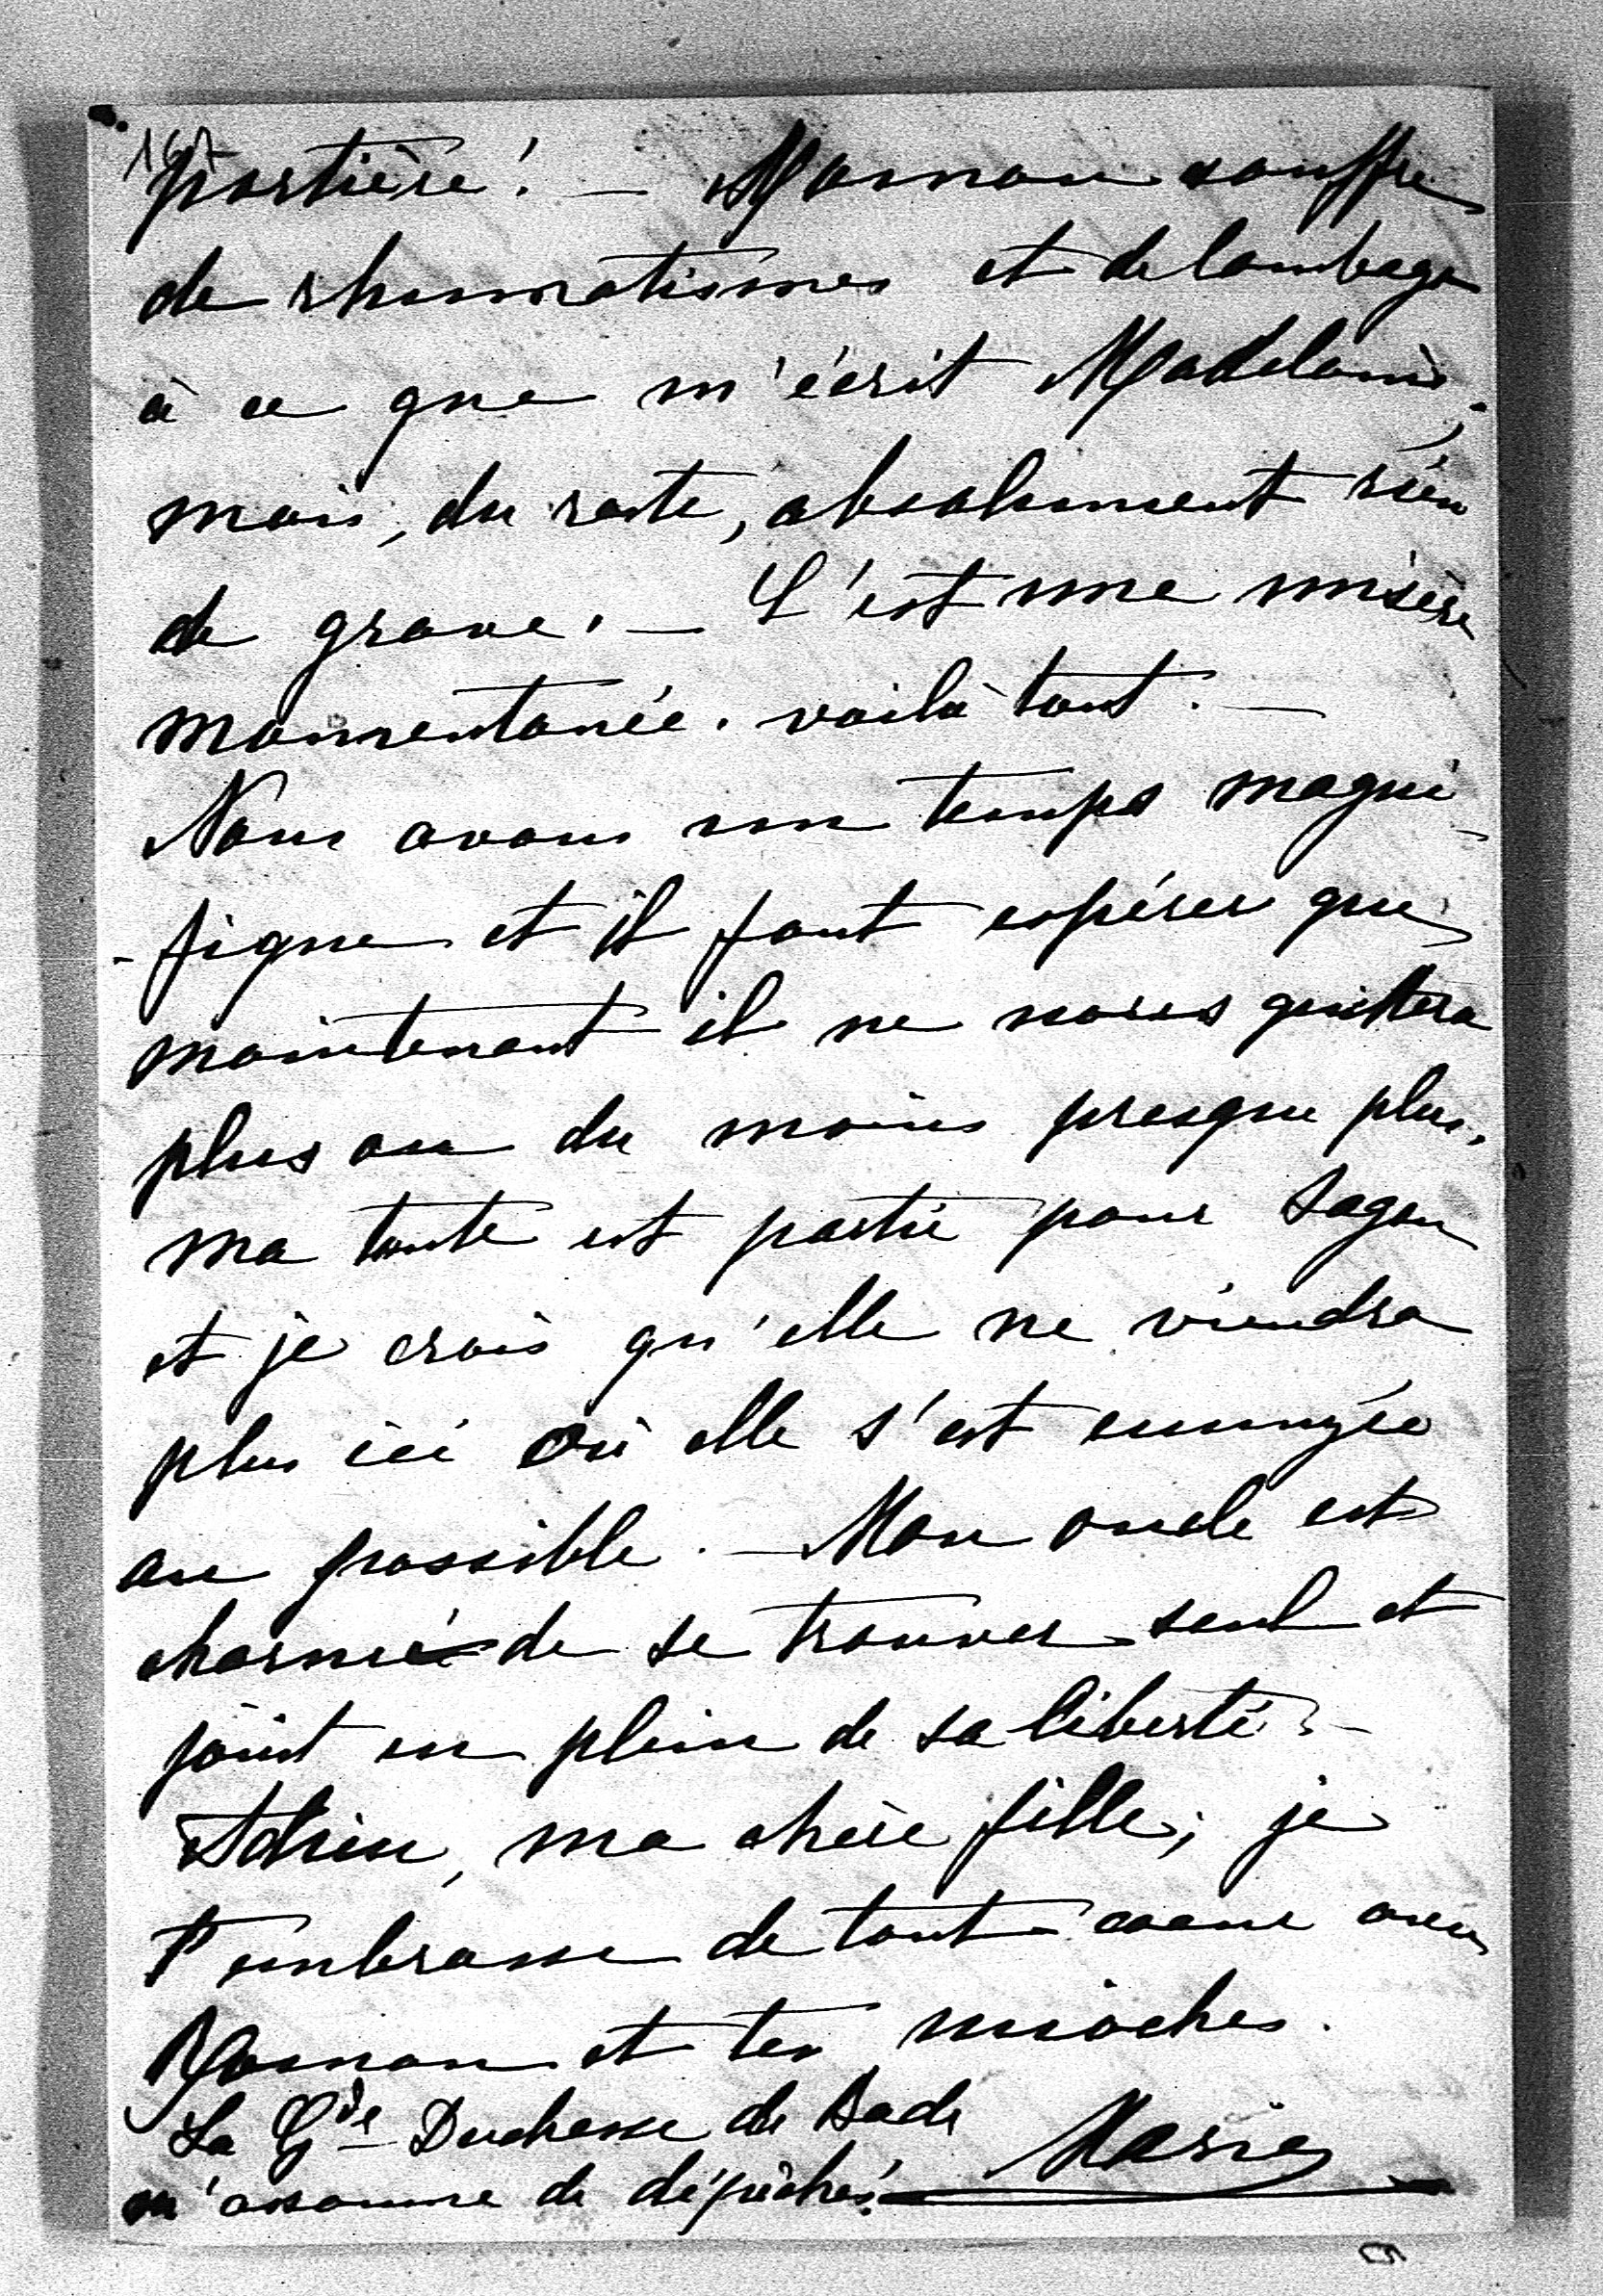 167
portière! — Maman souffre
de rhumatismes et de lombago
à ce que m'écrit Madeleine;
mais, du reste, absolument rien
de grave. — C'est une misère
momentanée. voilà tout. —
Nous avons un temps magni-
-fique et il faut espérer que
maintenant il ne nous quittera
plus ou du moins presque plus.
ma tante est partie pour Sagan
et je crois qu'elle ne viendra
plus ici où elle s'est ennuyée
au possible. — Mon oncle est
charmé de se trouver seul et
jouit en plein de sa liberté. —
Adieu, ma chère fille; je
t'embrasse de tout coeur avec
Maman et tes mioches.
La Gde Duchesse de Bade
m'assomme de dépêches.
Marie